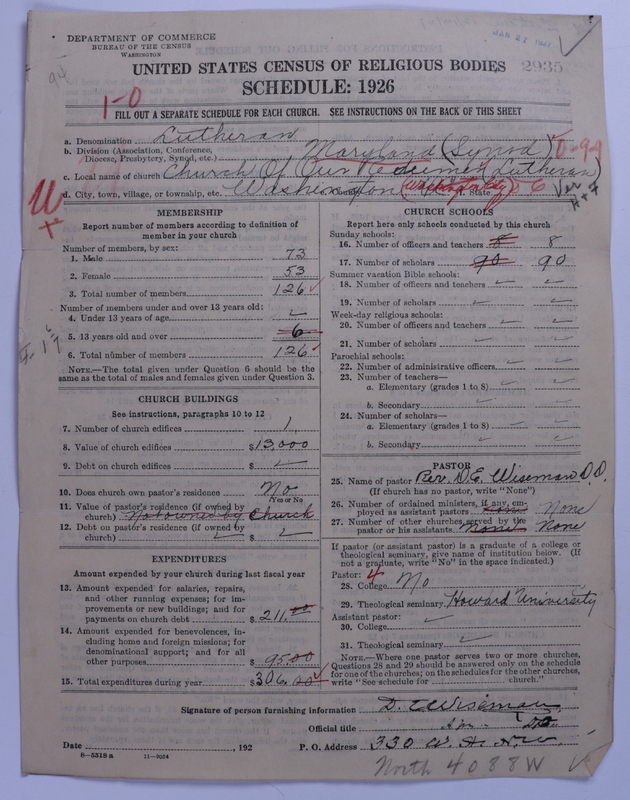 DEPARTMENT OF COMMERCE
BUREAU OF THE CENSUS
WASHINGTON
JAN 27
UNITED STATES CENSUS OF RELIGIOUS BODIES
2935
SCHEDULE: 1926
1-0
FILL OUT A SEPARATE SCHEDULE FOR EACH CHURCH. SEE INSTRUCTIONS ON THE BACK OF THIS SHEET
a. Denomination Lutheran
b. Division (Association, Conference, Diocese, Presbytery, Synod, etc.) Maryland (Synod) 0-9-9
c. Local name of church Church Of Our Redeemer (Lutheran)
d. City, town, village, or township, etc. Washington State
MEMBERSHIP
Report number of members according to definition of member in your church
Number of members, by sex:
1. Male 73
2. Female 53
3. Total number of members 126
Number of members under and over 13 years old:
4. Under 13 years of age
5. 13 years old and over 6
6. Total number of members 126
NOTE.—The total given under Question 6 should be the same as the total of males and females given under Question 3.
CHURCH BUILDINGS
See instructions, paragraphs 10 to 12
7. Number of church edifices 1
8. Value of church edifices $13,000
9. Debt on church edifices $
10. Does church own pastor's residence No
Yes or No
11. Value of pastor's residence (if owned by church) Not owned by Church
12. Debt on pastor's residence (if owned by church) $
EXPENDITURES
Amount expended by your church during last fiscal year
13. Amount expended for salaries, repairs, and other running expenses; for improvements or new buildings; and for payments on church debt $211.00
14. Amount expended for benevolences, including home and foreign missions; for denominational support; and for all other purposes $95.00
15. Total expenditures during year $306.00
CHURCH SCHOOLS
Report here only schools conducted by this church
Sunday schools:
16. Number of officers and teachers 8 8
17. Number of scholars 90 90
Summer vacation Bible schools:
18. Number of officers and teachers
19. Number of scholars
Week-day religious schools:
20. Number of officers and teachers
21. Number of scholars
Parochial schools:
22. Number of administrative officers
23. Number of teachers—
a. Elementary (grades 1 to 8)
b. Secondary
24. Number of scholars—
a. Elementary (grades 1 to 8)
b. Secondary
PASTOR
25. Name of pastor Rev. D. E. Wiseman D.D.
(If church has no pastor, write "None")
26. Number of ordained ministers, if any, employed as assistant pastors None None
27. Number of other churches served by the pastor or his assistants None None
If pastor (or assistant pastor) is a graduate of a college or theological seminary, give name of institution below. (If not a graduate, write "No" in the space indicated.)
Pastor: 4
28. College No
29. Theological seminary Howard University
Assistant pastor:
30. College
31. Theological seminary
NOTE.—Where one pastor serves two or more churches, Questions 28 and 29 should be answered only on the schedule for one of the churches; on the schedules for the other churches, write "See schedule for church."
Signature of person furnishing information D. E. Wiseman
Official title
Date , 192
P. O. Address 330 W. St. N.W
8-5318 a 11-9034
North 4088 W